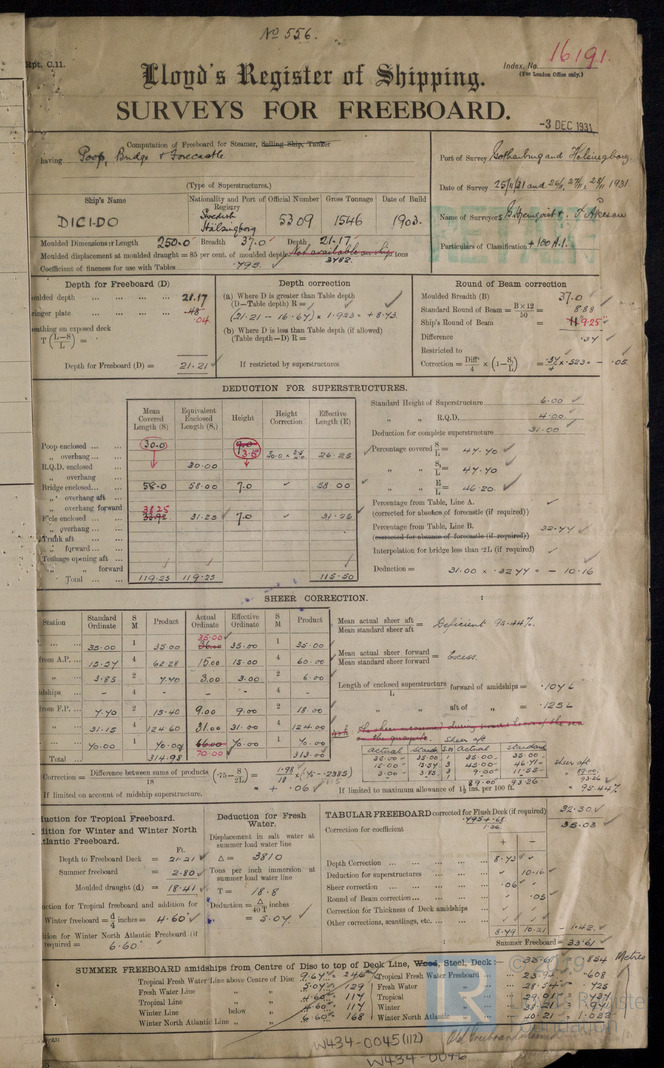 No 556.
Rpt. C.11.
Index. No. 16191.
(For London Office only.)
Lloyd's Register of Shipping.
SURVEYS FOR FREEBOARD.
-3 DEC 1931
Computation of Freeboard for Steamer, Sailing Ship, Tanker
having Poop, Bridge & Forecastle
(Type of Superstructures.)
Port of Survey Gothenburg and Helsingborg
Date of Survey
Name of Surveyors
Particulars of Classification +100 A.1.
Ship's Name
Nationality and Port of Registry
Official Number
Gross Tonnage
Date of Build
DICIDO
Swedish
Hälsingborg
5309
1546
1903.
Moulded Dimensions: Length 250.0 Breadth 37.0 Depth 21.17
Moulded displacement at moulded draught = 85 per cent. of moulded depth Not available on ship tons
Coefficient of fineness for use with Tables .793
Depth for Freeboard (D)
moulded depth ... 21.17
ringer plate ... .04
eathing on exposed deck
T (L-S / L) =
Depth for Freeboard (D) = 21.21
Depth correction
(a) Where D is greater than Table depth
(D—Table depth) R =
(21.21 - 16.67) × 1.923 = + 8.73
(b) Where D is less than Table depth (if allowed)
(Table depth—D) R =
If restricted by superstructures
Round of Beam correction
Moulded Breadth (B) 37.0
Standard Round of Beam = B×12 / 50 = 8.88
Ship's Round of Beam = 9.25
Difference .37
Restricted to
Correction = Diff / 4 × (1 - S / L) = .37 / 4 × .523 = - .05
DEDUCTION FOR SUPERSTRUCTURES.
Mean Covered Length (S)
Equivalent Enclosed Length (S₁)
Height
Height Correction
Effective Length (E)
Poop enclosed ... 30.0 26.25
" overhang ...
R.Q.D. enclosed 30.00
" overhang
Bridge enclosed... 58.0 58.00 7.0 58.00
" overhang aft
" overhang forward
F'cle enclosed ... 31.25 31.25 7.0 31.25
" overhang ...
Trunk aft ...
" forward ...
Tonnage opening aft
" " forward
Total ... 119.25 119.25 115.50
Standard Height of Superstructure 6.00
" " R.Q.D. 4.00
Deduction for complete superstructure 31.00
Percentage covered S / L = 47.70
" " S₁ / L = 47.70
" " E / L = 46.20
Percentage from Table, Line A.
(corrected for absence of forecastle (if required))
Percentage from Table, Line B. 32.77
(corrected for absence of forecastle (if required))
Interpolation for bridge less than ·2L (if required)
Deduction = 31.00 × .3277 = - 10.16
SHEER CORRECTION.
Station
Standard Ordinate
S M
Product
Actual Ordinate
Effective Ordinate
S M
Product
35.00 1 35.00 35.00 35.00 1 35.00
from A.P. ... 15.57 4 62.28 15.00 15.00 4 60.00
" 3.85 2 7.70 3.00 3.00 2 6.00
idships - 4 - - - 4 -
from F.P. ... 7.70 2 15.40 9.00 9.00 2 18.00
" 31.15 4 124.60 31.00 31.00 4 124.00
" 70.00 1 70.00 70.00 70.00 1 70.00
Total ... 314.98 313.00
Mean actual sheer aft
Mean standard sheer aft = Deficient 95.44%
Mean actual sheer forward
Mean standard sheer forward = Excess
Length of enclosed superstructure forward of amidships / L = .1076
" " aft of " = .1256
Sheer aft
Actual Stand. S.M Actual Standard
Correction = Difference between sums of products / 18 (·75 - S / 2L) = 1.98 / 18 (.75 - .2385) = + .06
If limited on account of midship superstructure.
If limited to maximum allowance of 1½ ins. per 100 ft.
sheer aft = 95.44%
duction for Tropical Freeboard.
dition for Winter and Winter North
tlantic Freeboard.
Ft.
Depth to Freeboard Deck = 21.21
Summer freeboard = 2.80
Moulded draught (d) = 18.41
uction for Tropical freeboard and addition for
Winter freeboard = d / 4 inches = 4.60
ition for Winter North Atlantic Freeboard (if
required) = 6.60
Deduction for Fresh Water.
Displacement in salt water at summer load water line
Δ = 3810
Tons per inch immersion at summer load water line
T = 18.8
Deduction = Δ / 40T inches
= 5.07
TABULAR FREEBOARD corrected for Flush Deck (if required) 32.30
Correction for coefficient .793+.68 / 1.36 35.03
+ -
Depth Correction ... 8.73
Deduction for superstructures ... 10.16
Sheer correction ... .06
Round of Beam correction... .05
Correction for Thickness of Deck amidships
Other corrections, scantlings, etc. ...
8.79 10.21 - 1.42
Summer Freeboard = 33.61
SUMMER FREEBOARD amidships from Centre of Disc to top of Deck Line, Wood, Steel, Deck:— 33.61 854 Metres
Tropical Fresh Water Line above Centre of Disc 9.67" 246
Fresh Water Line " 5.07" 129
Tropical Line " 4.60" 117
Winter Line below " 4.60" 117
Winter North Atlantic Line " " 6.60" 168
Tropical Fresh Water Freeboard 23.94 .608
Fresh Water " 28.54 725
Tropical " 29.01 737
Winter " 971
Winter North Atlantic " 40.21 1.022
W434-0045(1/2)
W434-0046